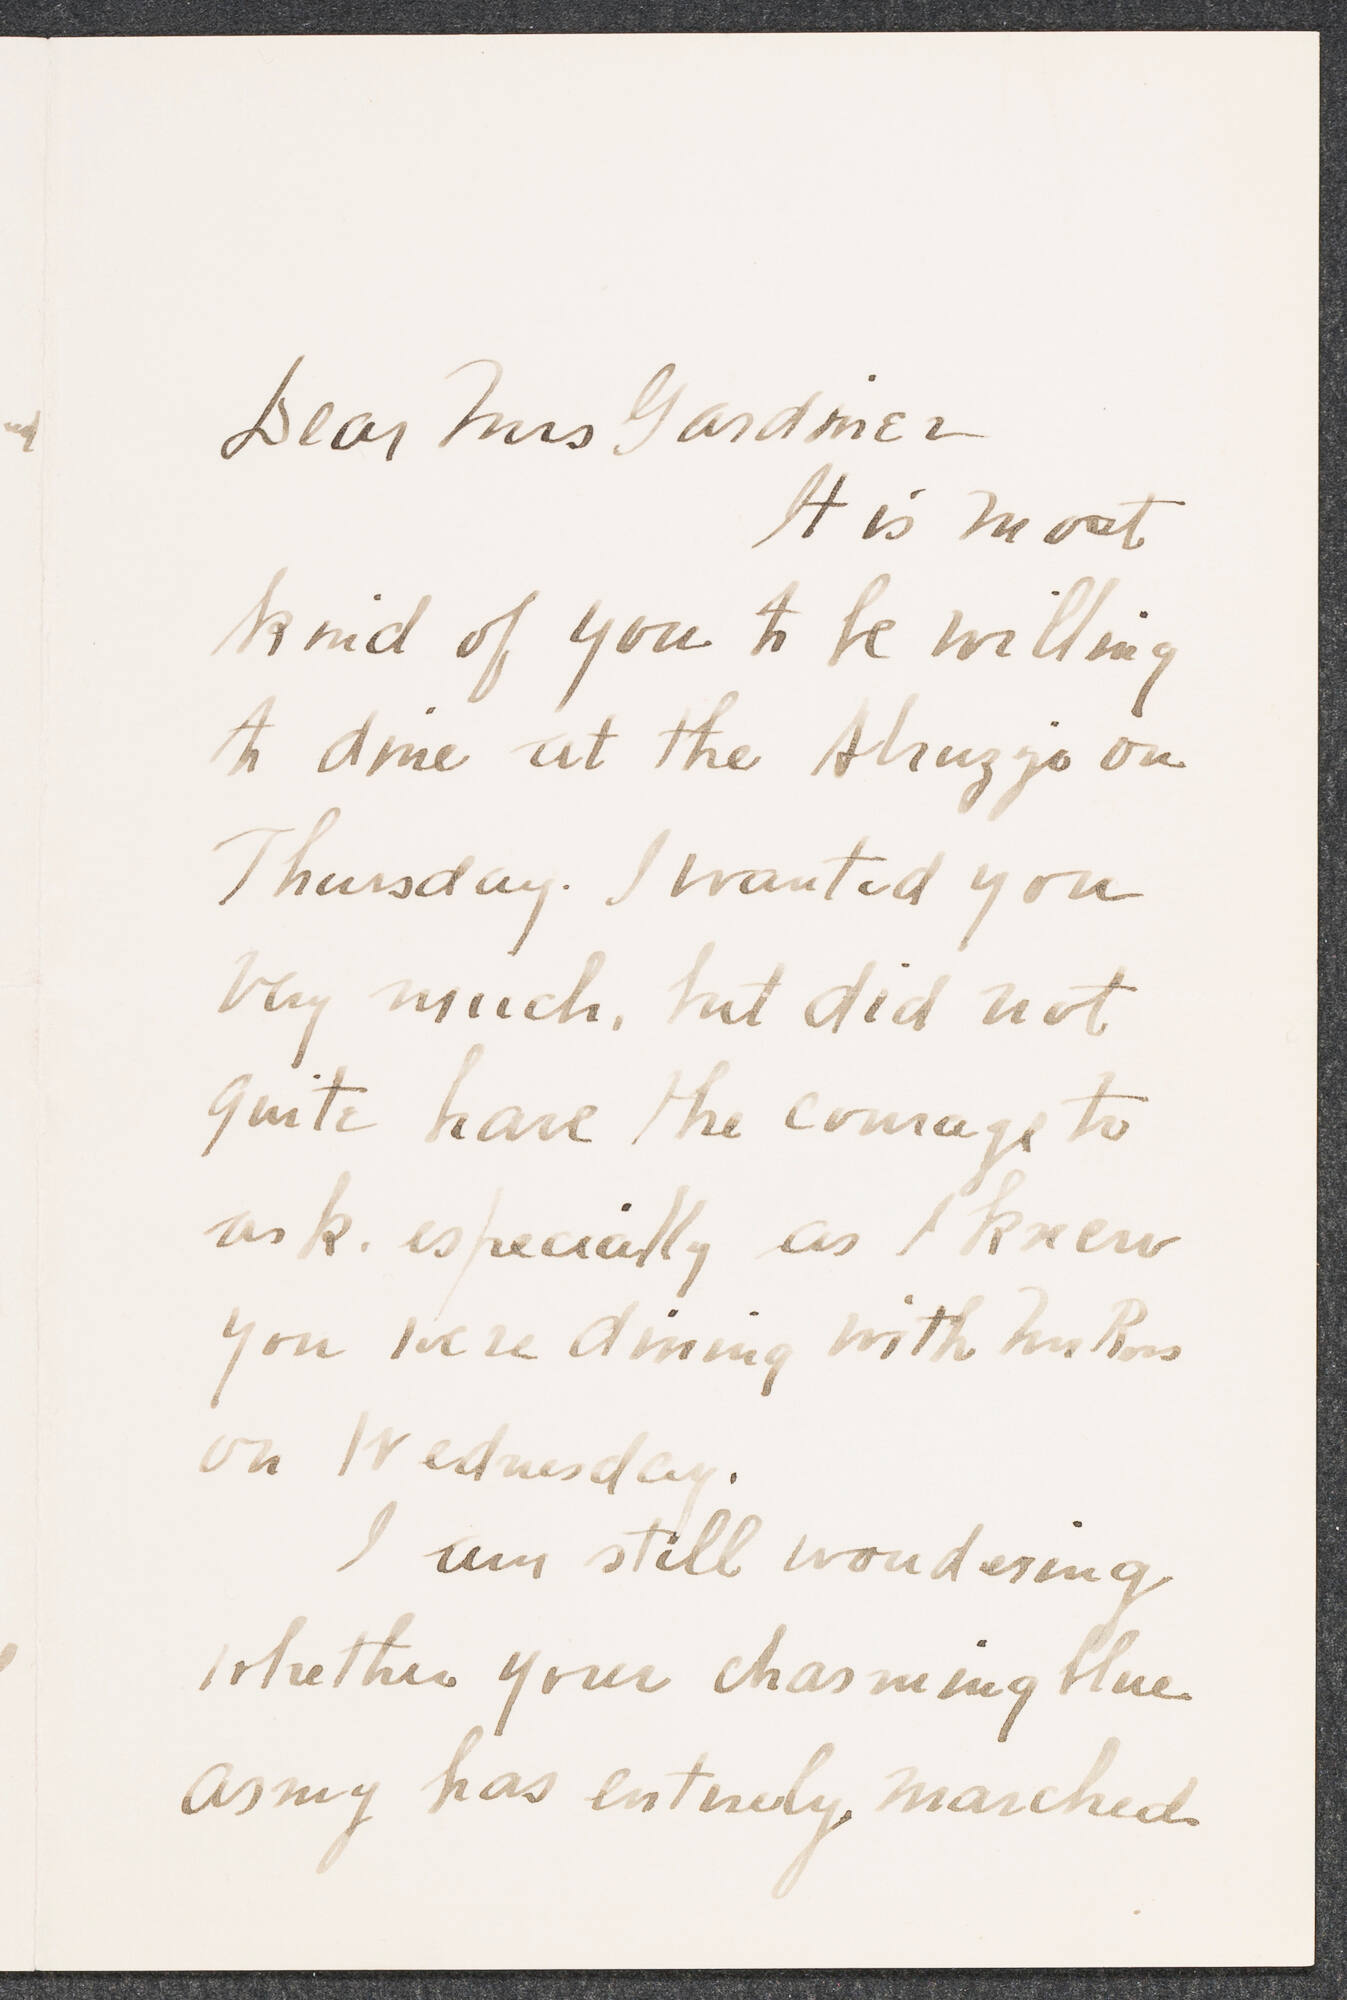 Dear Mrs Gardiner
It is most
kind of you to be willing
to dine at the Abruzzi on
Thursday. I wanted you
very much, but did not
quite have the courage to
ask. especially as I knew
you were dining with Mr Ross
on Wednesday.
I am still wondering
whether your charming blue
army has entirely marched